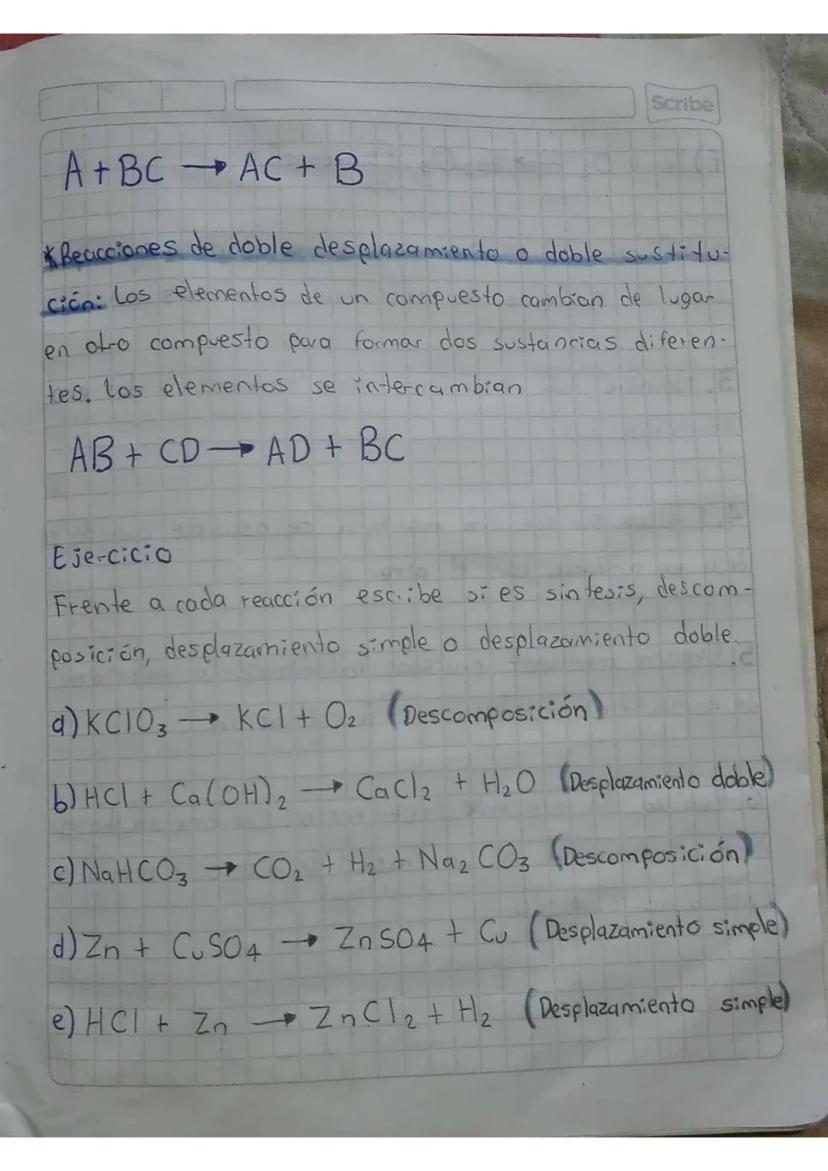 Scribe
A + BC → AC + B
*Reacciones de doble desplazamiento o doble sustitu-
ción: Los elementos de un compuesto cambian de lugar
en otro compuesto para formar dos sustancias diferen-
tes. Los elementos se intercambian
AB + CD → AD + BC
Ejercicio
Frente a cada reacción escribe si es sintesis, descom-
posición, desplazamiento simple o desplazamiento doble.
a) KClO₃ → KCl + O₂ (Descomposición)
b) HCl + Ca(OH)₂ → CaCl₂ + H₂O (Desplazamiento doble)
c) NaHCO₃ → CO₂ + H₂ + Na₂CO₃ (Descomposición)
d) Zn + CuSO₄ → ZnSO₄ + Cu (Desplazamiento simple)
e) HCl + Zn → ZnCl₂ + H₂ (Desplazamiento simple)